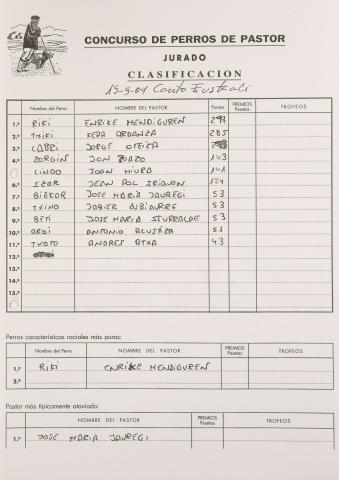 CONCURSO DE PERROS DE PASTOR
JURADO
CLASIFICACION
19-9-04
Nombre del Perro NOMBRE DEL PASTOR Puntos PREMIOS Pesetas TROFEOS
1.º RIKI ENRIKE MENDIGUREN
2.º TXIKI KEPA ARDANZA 285
3.º JORGE OTEIZA
4.º ZORGIN JON 143
LINDO JOAN MIURA 141
6.º IZAR JEAN POL 124
7.º BIZKOR JOSE MARIA JAUREGI 53
8.º TXINO JABIER 53
9.º BETI JOSE MARIA ITURRALDE 53
10.º ARGI ANTONIO ALUSTIZA 51
11.º TXATO ANDRES ATXA 43
12.º
13.º
14.º
15.º
Perros características raciales más puras:
Nombre del Perro NOMBRE DEL PASTOR PREMIOS Pesetas TROFEOS
1.º RIKI ENRIKE MENDIGUREN
2.º
Pastor más típicamente ataviado:
NOMBRE DEL PASTOR PREMIOS Pesetas TROFEOS
1.º JOSE MARIA JAUREGI